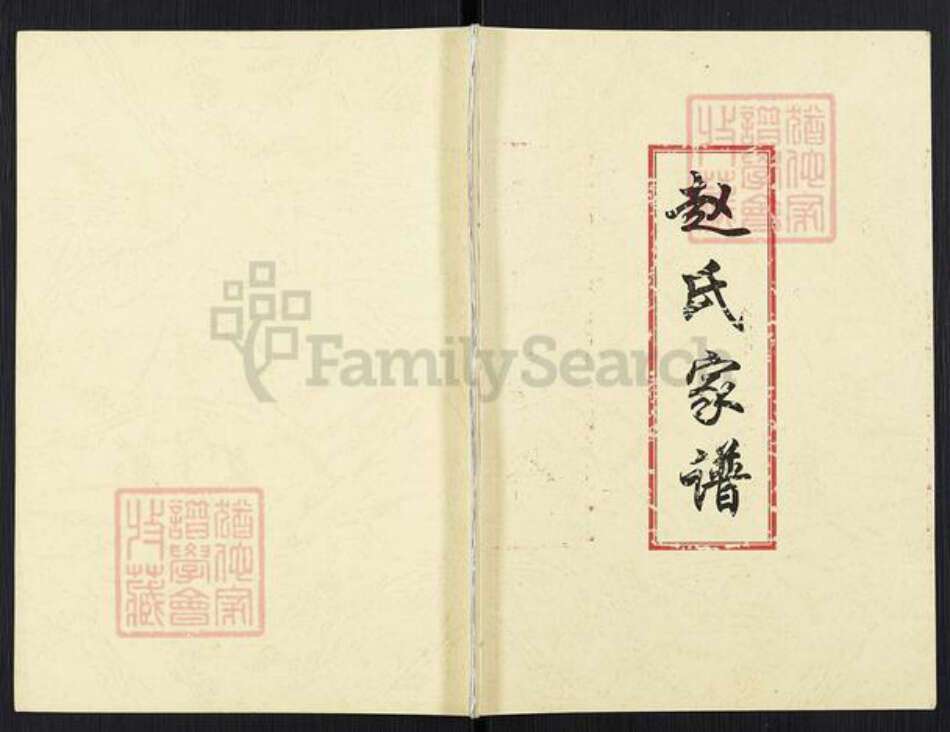 赵氏家谱
猶他家
譜學會
收藏
FamilySearch
猶他家
譜學會
收藏